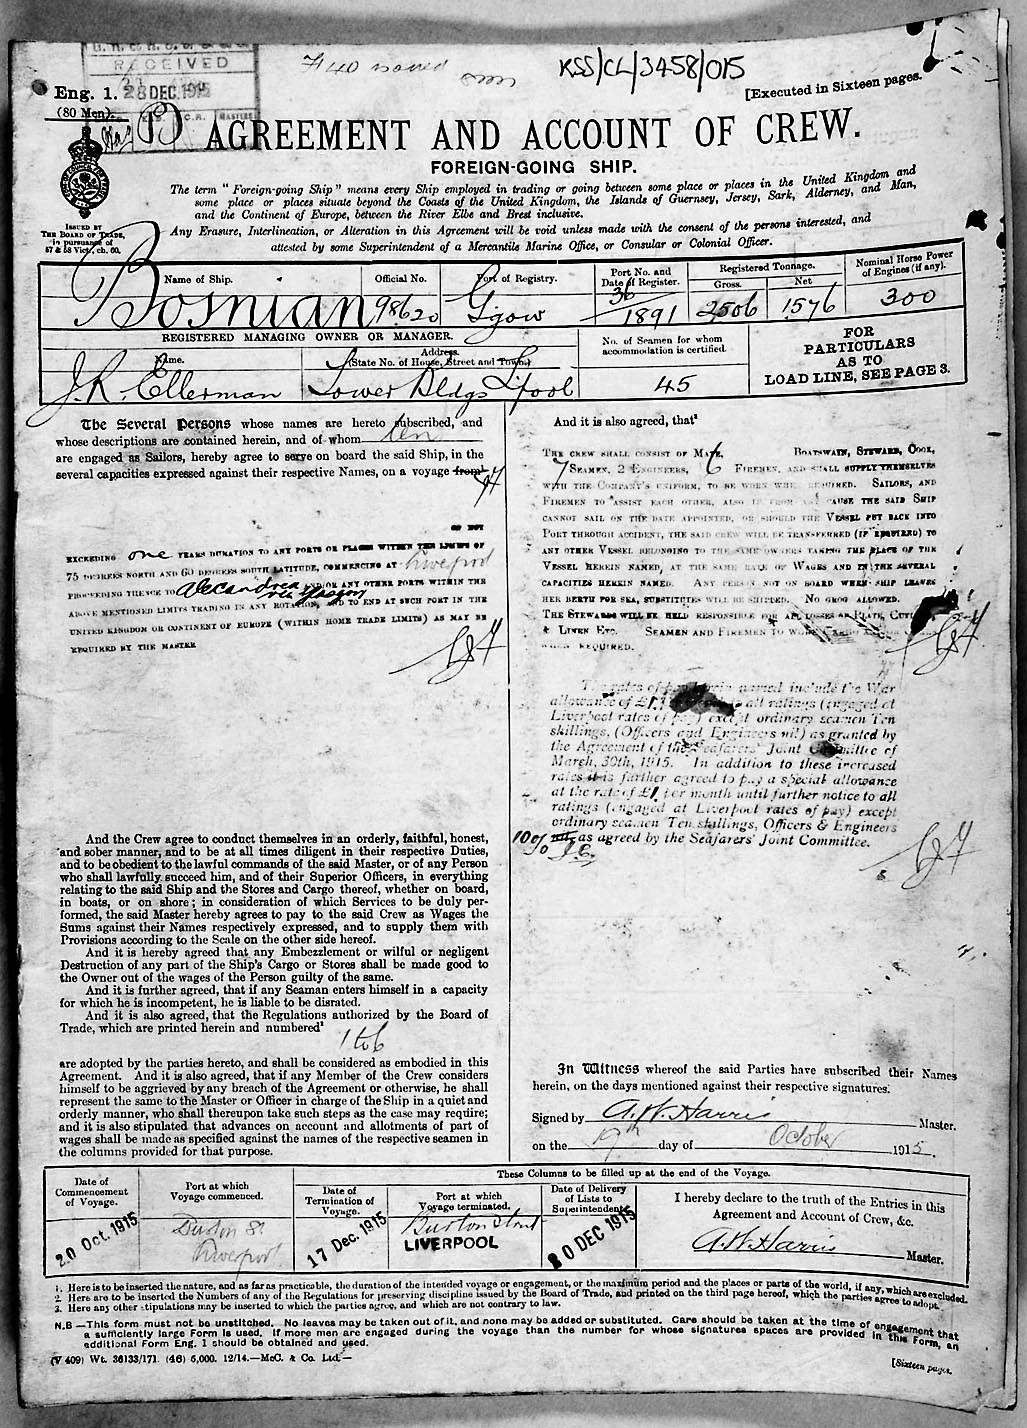 RECEIVED
28 DEC. 1915
KSS/CL/3458/015
[Executed in Sixteen pages.
Eng. 1.
(80 Men).
AGREEMENT AND ACCOUNT OF CREW.
FOREIGN-GOING SHIP.
The term "Foreign-going Ship" means every Ship employed in trading or going between some place or places in the United Kingdom and
some place or places situate beyond the Coasts of the United Kingdom, the Islands of Guernsey, Jersey, Sark, Alderney, and Man,
and the Continent of Europe, between the River Elbe and Brest inclusive.
Any Erasure, Interlineation, or Alteration in this Agreement will be void unless made with the consent of the persons interested, and
attested by some Superintendent of a Mercantile Marine Office, or Consular or Colonial Officer.
ISSUED BY
THE BOARD OF TRADE,
in pursuance of
57 & 58 Vict., ch. 60.
Name of Ship. Official No. Port of Registry. Port No. and Date of Register. Registered Tonnage. Gross. Net Nominal Horse Power of Engines (if any).
Bosnian 98620 Ggow 36/1891 2506 1576 300
REGISTERED MANAGING OWNER OR MANAGER.
Name. Address. (State No. of House, Street and Town.)
J.R. Ellerman Tower Bldgs L'pool
No. of Seamen for whom
accommodation is certified.
45
FOR
PARTICULARS
AS TO
LOAD LINE, SEE PAGE 3.
The Several Persons whose names are hereto subscribed, and
whose descriptions are contained herein, and of whom ten
are engaged as Sailors, hereby agree to serve on board the said Ship, in the
several capacities expressed against their respective Names, on a voyage from¹ of
NOT
EXCEEDING one YEARS DURATION TO ANY PORTS OR PLACES WITHIN THE LIMITS OF
75 DEGREES NORTH AND 60 DEGREES SOUTH LATITUDE, COMMENCING AT Liverpool
PROCEEDING THENCE TO Alexandrea via Glasgow AND/OR ANY OTHER PORTS WITHIN THE
ABOVE MENTIONED LIMITS TRADING IN ANY ROTATION, AND TO END AT SUCH PORT IN THE
UNITED KINGDOM OR CONTINENT OF EUROPE (WITHIN HOME TRADE LIMITS) AS MAY BE
REQUIRED BY THE MASTER
And the Crew agree to conduct themselves in an orderly, faithful, honest,
and sober manner, and to be at all times diligent in their respective Duties,
and to be obedient to the lawful commands of the said Master, or of any Person
who shall lawfully succeed him, and of their Superior Officers, in everything
relating to the said Ship and the Stores and Cargo thereof, whether on board,
in boats, or on shore; in consideration of which Services to be duly per-
formed, the said Master hereby agrees to pay to the said Crew as Wages the
Sums against their Names respectively expressed, and to supply them with
Provisions according to the Scale on the other side hereof.
And it is hereby agreed that any Embezzlement or wilful or negligent
Destruction of any part of the Ship's Cargo or Stores shall be made good to
the Owner out of the wages of the Person guilty of the same.
And it is further agreed, that if any Seaman enters himself in a capacity
for which he is incompetent, he is liable to be disrated.
And it is also agreed, that the Regulations authorized by the Board of
Trade, which are printed herein and numbered²
1 to 6
are adopted by the parties hereto, and shall be considered as embodied in this
Agreement. And it is also agreed, that if any Member of the Crew considers
himself to be aggrieved by any breach of the Agreement or otherwise, he shall
represent the same to the Master or Officer in charge of the Ship in a quiet and
orderly manner, who shall thereupon take such steps as the case may require;
and it is also stipulated that advances on account and allotments of part of
wages shall be made as specified against the names of the respective seamen in
the columns provided for that purpose.
And it is also agreed, that³
THE CREW SHALL CONSIST OF MATE, BOATSWAIN, STEWARD, COOK,
7 SEAMEN, 2 ENGINEERS, 6 FIREMEN, AND SHALL SUPPLY THEMSELVES
WITH THE COMPANY'S UNIFORM, TO BE WORN WHEN REQUIRED. SAILORS, AND
FIREMEN TO ASSIST EACH OTHER, ALSO IF FROM ANY CAUSE THE SAID SHIP
CANNOT SAIL ON THE DATE APPOINTED, OR SHOULD THE VESSEL PUT BACK INTO
PORT THROUGH ACCIDENT, THE SAID CREW WILL BE TRANSFERRED (IF REQUIRED) TO
ANY OTHER VESSEL BELONGING TO THE SAME OWNERS TAKING THE PLACE OF THE
VESSEL HEREIN NAMED, AT THE SAME RATE OF WAGES AND IN THE SEVERAL
CAPACITIES HEREIN NAMED. ANY PERSON NOT ON BOARD WHEN SHIP LEAVES
HER BERTH FOR SEA, SUBSTITUTES WILL BE SHIPPED. NO GROG ALLOWED.
THE STEWARDS WILL BE HELD RESPONSIBLE FOR ALL LOSSES OF PLATE,
& LINEN ETC. SEAMEN AND FIREMEN TO WORK CARGO
WHEN REQUIRED.
The rates of pay herein named include the War
allowance of £1 to all ratings (engaged at
Liverpool rates of pay) except ordinary seamen Ten
shillings, (Officers and Engineers nil) as granted by
the Agreement of the Seafarers' Joint Committee of
March, 30th, 1915. In addition to these increased
rates it is further agreed to pay a special allowance
at the rate of £1 per month until further notice to all
ratings (engaged at Liverpool rates of pay) except
ordinary seamen Ten shillings, Officers & Engineers
10% nil, as agreed by the Seafarers' Joint Committee.
In Witness whereof the said Parties have subscribed their Names
herein, on the days mentioned against their respective signatures.
Signed by A.W. Harris Master.
on the 19th day of October 1915.
These Columns to be filled up at the end of the Voyage.
Date of Commencement of Voyage. Port at which Voyage commenced. Date of Termination of Voyage. Port at which Voyage terminated. Date of Delivery of Lists to Superintendent.
20 Oct. 1915 Liverpool 17 Dec. 1915 LIVERPOOL 20 DEC 1915
I hereby declare to the truth of the Entries in this
Agreement and Account of Crew, &c.
A.W. Harris Master.
1. Here is to be inserted the nature, and as far as practicable, the duration of the intended voyage or engagement, or the maximum period and the places or parts of the world, if any, which are excluded.
2. Here are to be inserted the Numbers of any of the Regulations for preserving discipline issued by the Board of Trade, and printed on the third page hereof, which the parties agree to adopt.
3. Here any other stipulations may be inserted to which the parties agree, and which are not contrary to law.
N.B—This form must not be unstitched. No leaves may be taken out of it, and none may be added or substituted. Care should be taken at the time of engagement that
a sufficiently large Form is used. If more men are engaged during the voyage than the number for whose signatures spaces are provided in this Form, an
additional Form Eng. 1 should be obtained and used.
(V 409) Wt. 36133/171. (46) 5,000. 12/14.—McC. & Co. Ltd.—
[Sixteen pages.